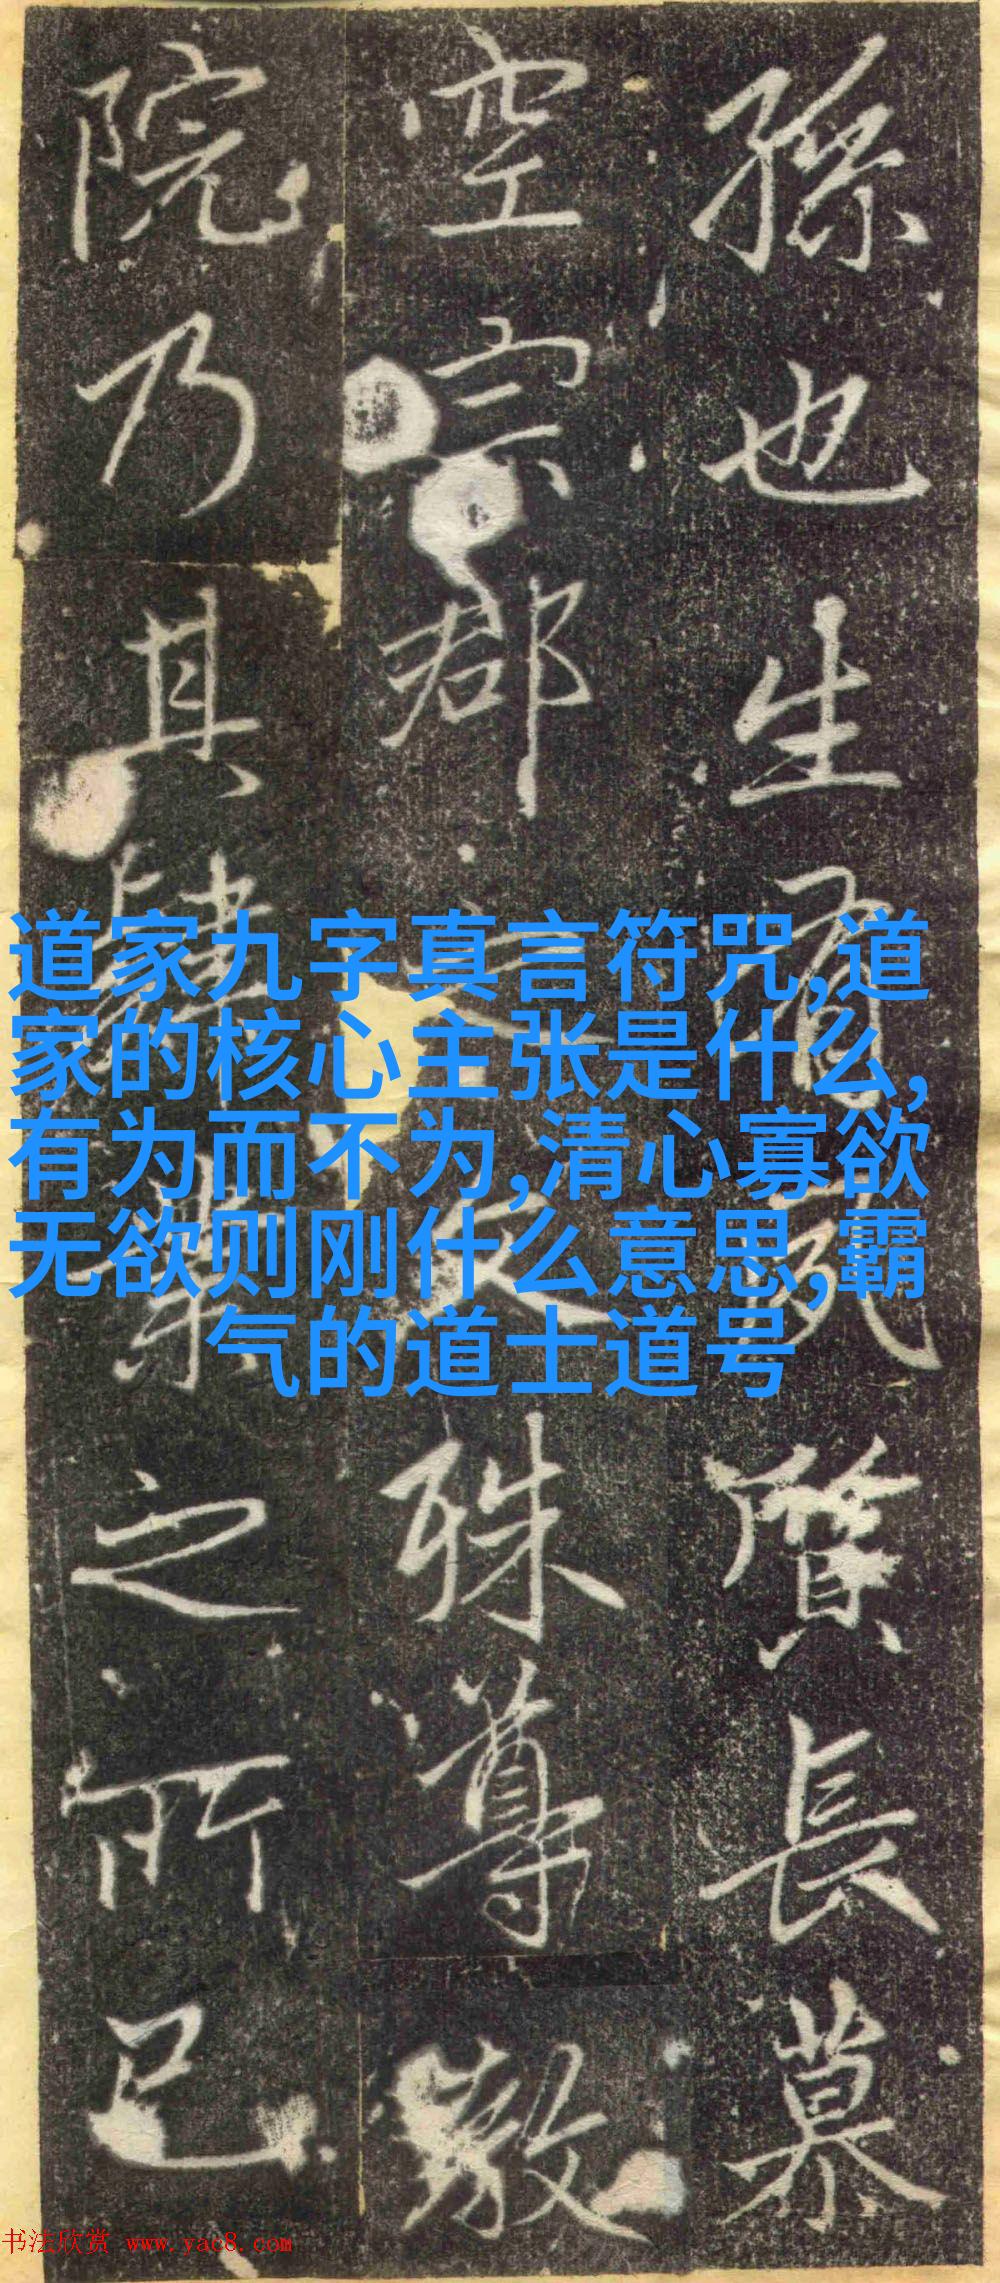 孫也生有質長慕
空宗郡文殊尊
院乃其肄業之所已
道家九字真言符咒,道
家的核心主张是什么,
有为而不为,清心寡欲
无欲则刚什么意思,霸
气的道士道号
书法欣赏 www.yac8.com